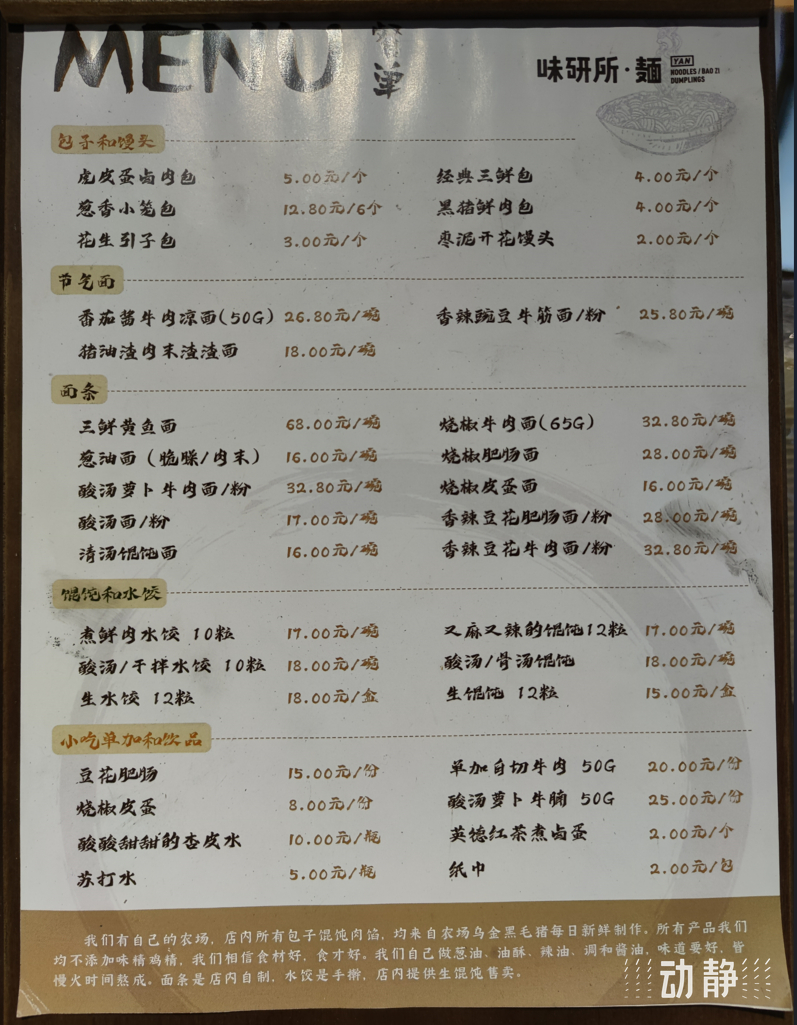 MENU 餐单
味研所·麵 YAN
NOODLES / BAO ZI
DUMPLINGS
包子和馒头
虎皮蛋卤肉包 5.00元/个 经典三鲜包 4.00元/个
葱香小笼包 12.80元/6个 黑猪鲜肉包 4.00元/个
花生引子包 3.00元/个 枣泥开花馒头 2.00元/个
节气面
番茄酱牛肉凉面(50G) 26.80元/碗 香辣豌豆牛筋面/粉 25.80元/碗
猪油渣肉末渣渣面 18.00元/碗
面条
三鲜黄鱼面 68.00元/碗 烧椒牛肉面(65G) 32.80元/碗
葱油面（脆臊/肉末） 16.00元/碗 烧椒肥肠面 28.00元/碗
酸汤萝卜牛肉面/粉 32.80元/碗 烧椒皮蛋面 16.00元/碗
酸汤面/粉 17.00元/碗 香辣豆花肥肠面/粉 28.00元/碗
清汤馄饨面 16.00元/碗 香辣豆花牛肉面/粉 32.80元/碗
馄饨和水饺
煮鲜肉水饺 10粒 17.00元/碗 又麻又辣的馄饨12粒 17.00元/碗
酸汤/干拌水饺 10粒 18.00元/碗 酸汤/骨汤馄饨 18.00元/碗
生水饺 12粒 18.00元/盒 生馄饨 12粒 15.00元/盒
小吃单加和饮品
豆花肥肠 15.00元/份 单加白切牛肉 50G 20.00元/份
烧椒皮蛋 8.00元/份 酸汤萝卜牛腩 50G 25.00元/份
酸酸甜甜的杏皮水 10.00元/瓶 英德红茶煮卤蛋 2.00元/个
苏打水 5.00元/瓶 纸巾 2.00元/包
我们有自己的农场，店内所有包子馄饨肉馅，均来自农场乌金黑毛猪每日新鲜制作。所有产品我们
均不添加味精鸡精，我们相信食材好，食才好。我们自己做葱油、油酥、辣油、调和酱油，味道要好，皆
慢火时间熬成。面条是店内自制，水饺是手擀，店内提供生馄饨售卖。
动静